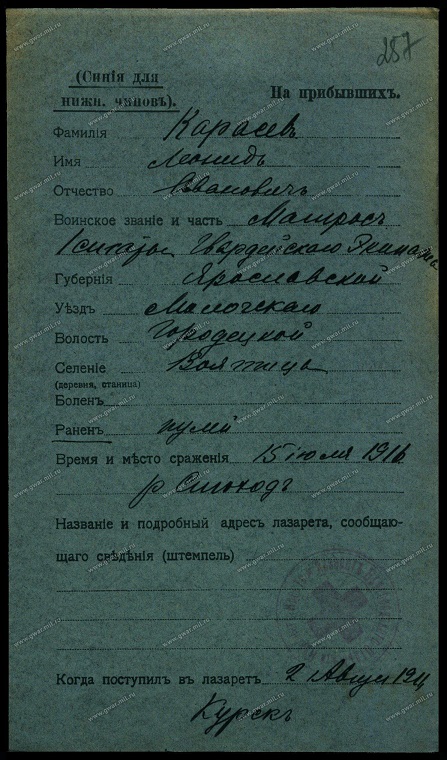 287
(Синія для
нижн. чиновъ).
На прибывшихъ.
Фамилія Карасевъ
Имя Леонидъ
Отчество Ивановичъ
Воинское званіе и часть Матросъ
Гвардейскаго Экипажа
Губернія Ярославской
Уѣздъ Мологскаго
Волость Городецкой
Селеніе
(деревня, станица)
Боленъ
Раненъ пулей
Время и мѣсто сраженія 15 іюля 1916
р Стоходъ
Названіе и подробный адресъ лазарета, сообщаю-
щаго свѣдѣнія (штемпель)
Когда поступилъ въ лазаретъ 2 Август
Курскъ
www.gwar.mil.ru